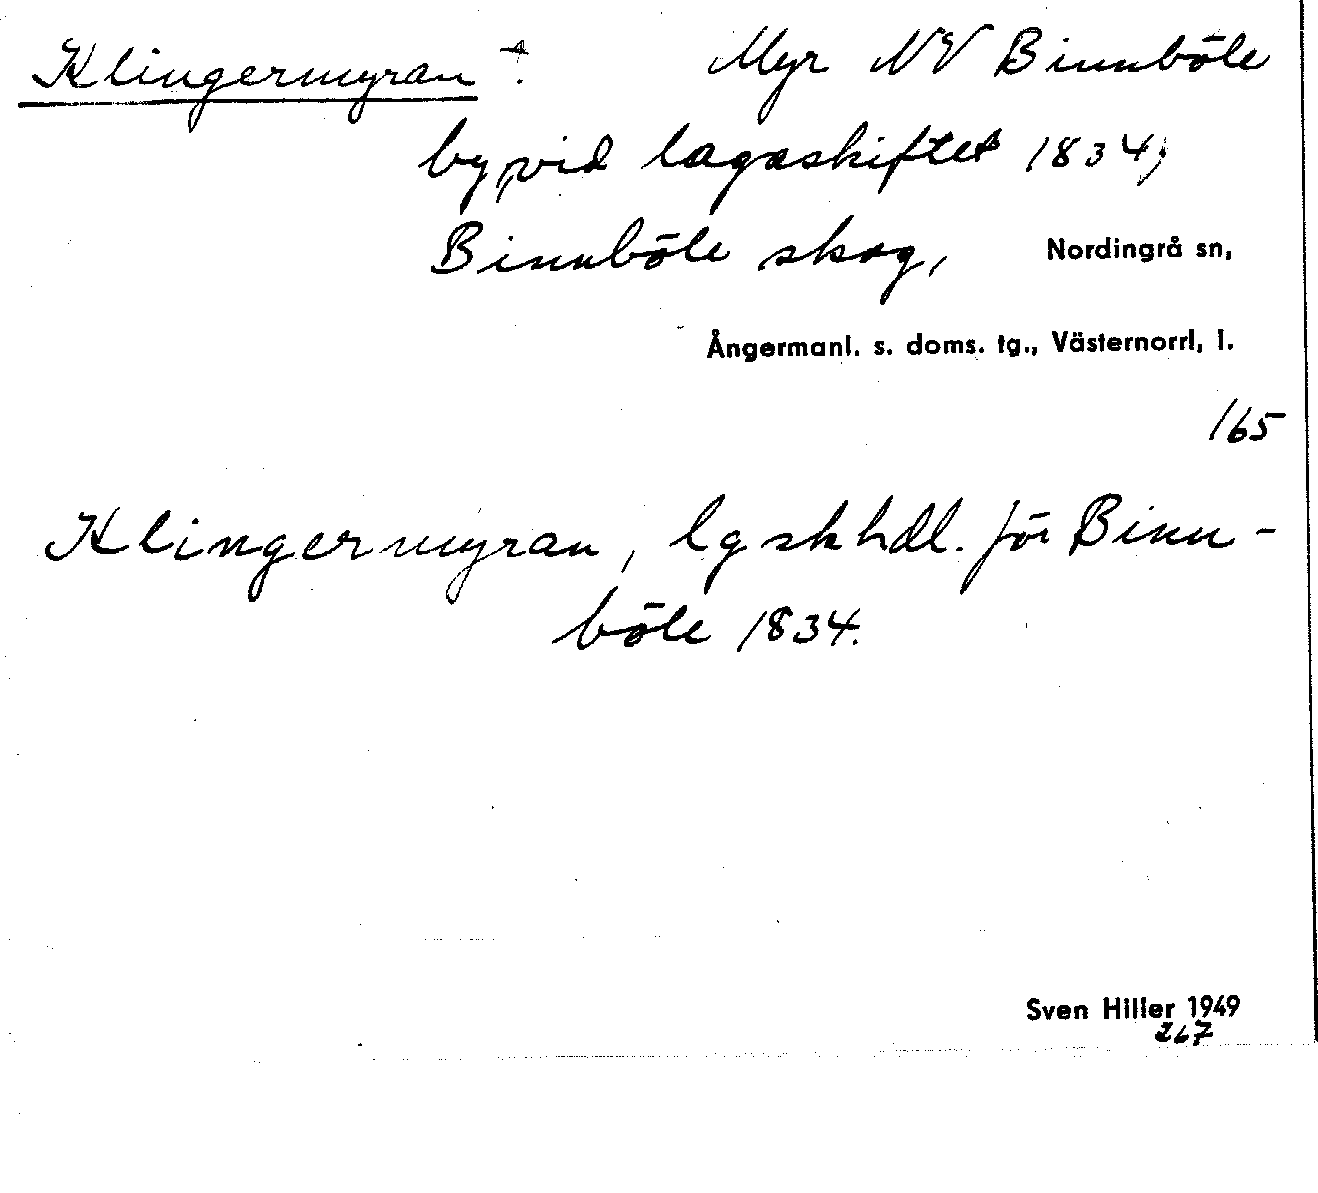 Klingermyran †. Myr NV Binnböle
by, vid lagaskiftet 1834,
Binnböle skog, Nordingrå sn,
Ångermanl. s. doms. tg., Västernorrl, l.
165
Klingermyran, lgskhdl. för Binn-
böle 1834.
Sven Hiller 1949
267